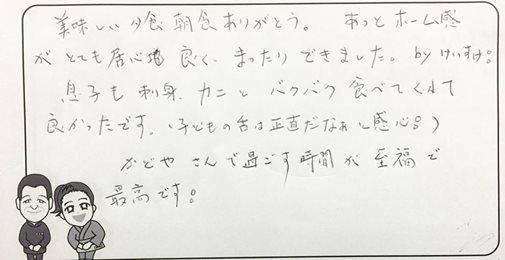 美味しい夕食 朝食ありがとう。 あっとホーム感
が とても居心地 良く、まったり できました。by けいすけ!
息子も 刺身、カニ と バクバク 食べて くれて
良かったです。(子どもの舌は正直だなぁ と感心!)
かどや さんで過ごす時間 が 至福 で
最高です!